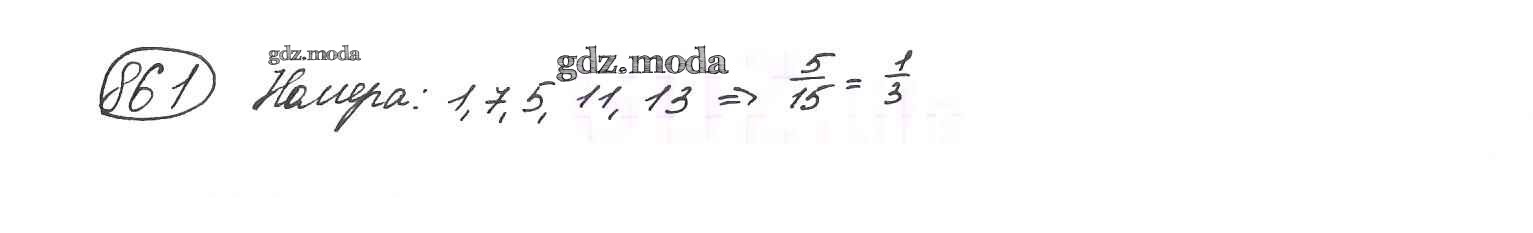 861 Номера: 1, 7, 5, 11, 13 => 5/15 = 1/3
gdz.moda
gdz.moda